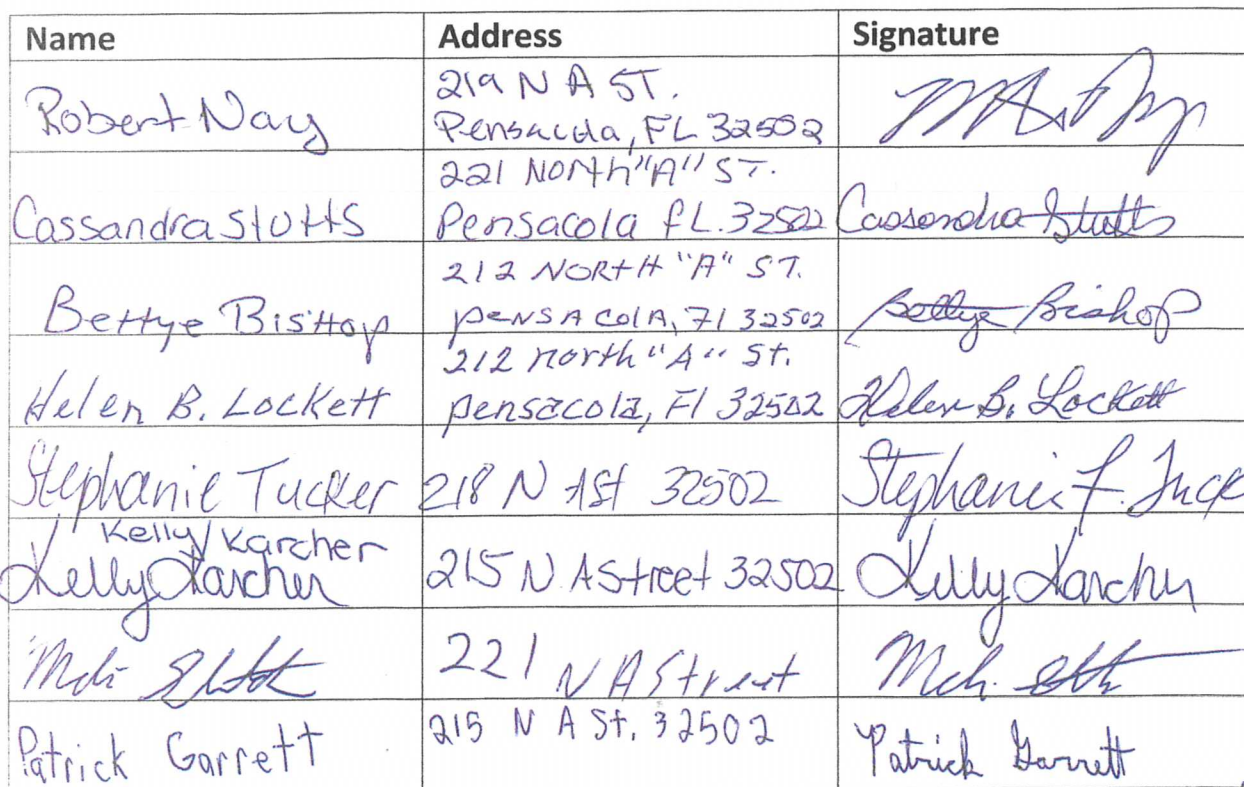 Name Address Signature
Robert Nay
219 N A ST.
Pensacola, FL 32502
Cassandra Stutts
221 North "A" ST.
Pensacola fL. 32502
Cassandra Stutts
Bettye Bishop
212 NORTH "A" ST.
PENSACOlA, Fl 32502
Bettye Bishop
Helen B. Lockett
212 north "A" St.
pensacola, Fl 32502
Helen B. Lockett
Stephanie Tucker
218 N A St 32502
Stephanie F. Tuck
Kelly Karcher
Kelly Karcher
215 N. A Street 32502
Kelly Karcher
221 N A Street
Patrick Garrett
215 N A St. 32502
Patrick Garrett